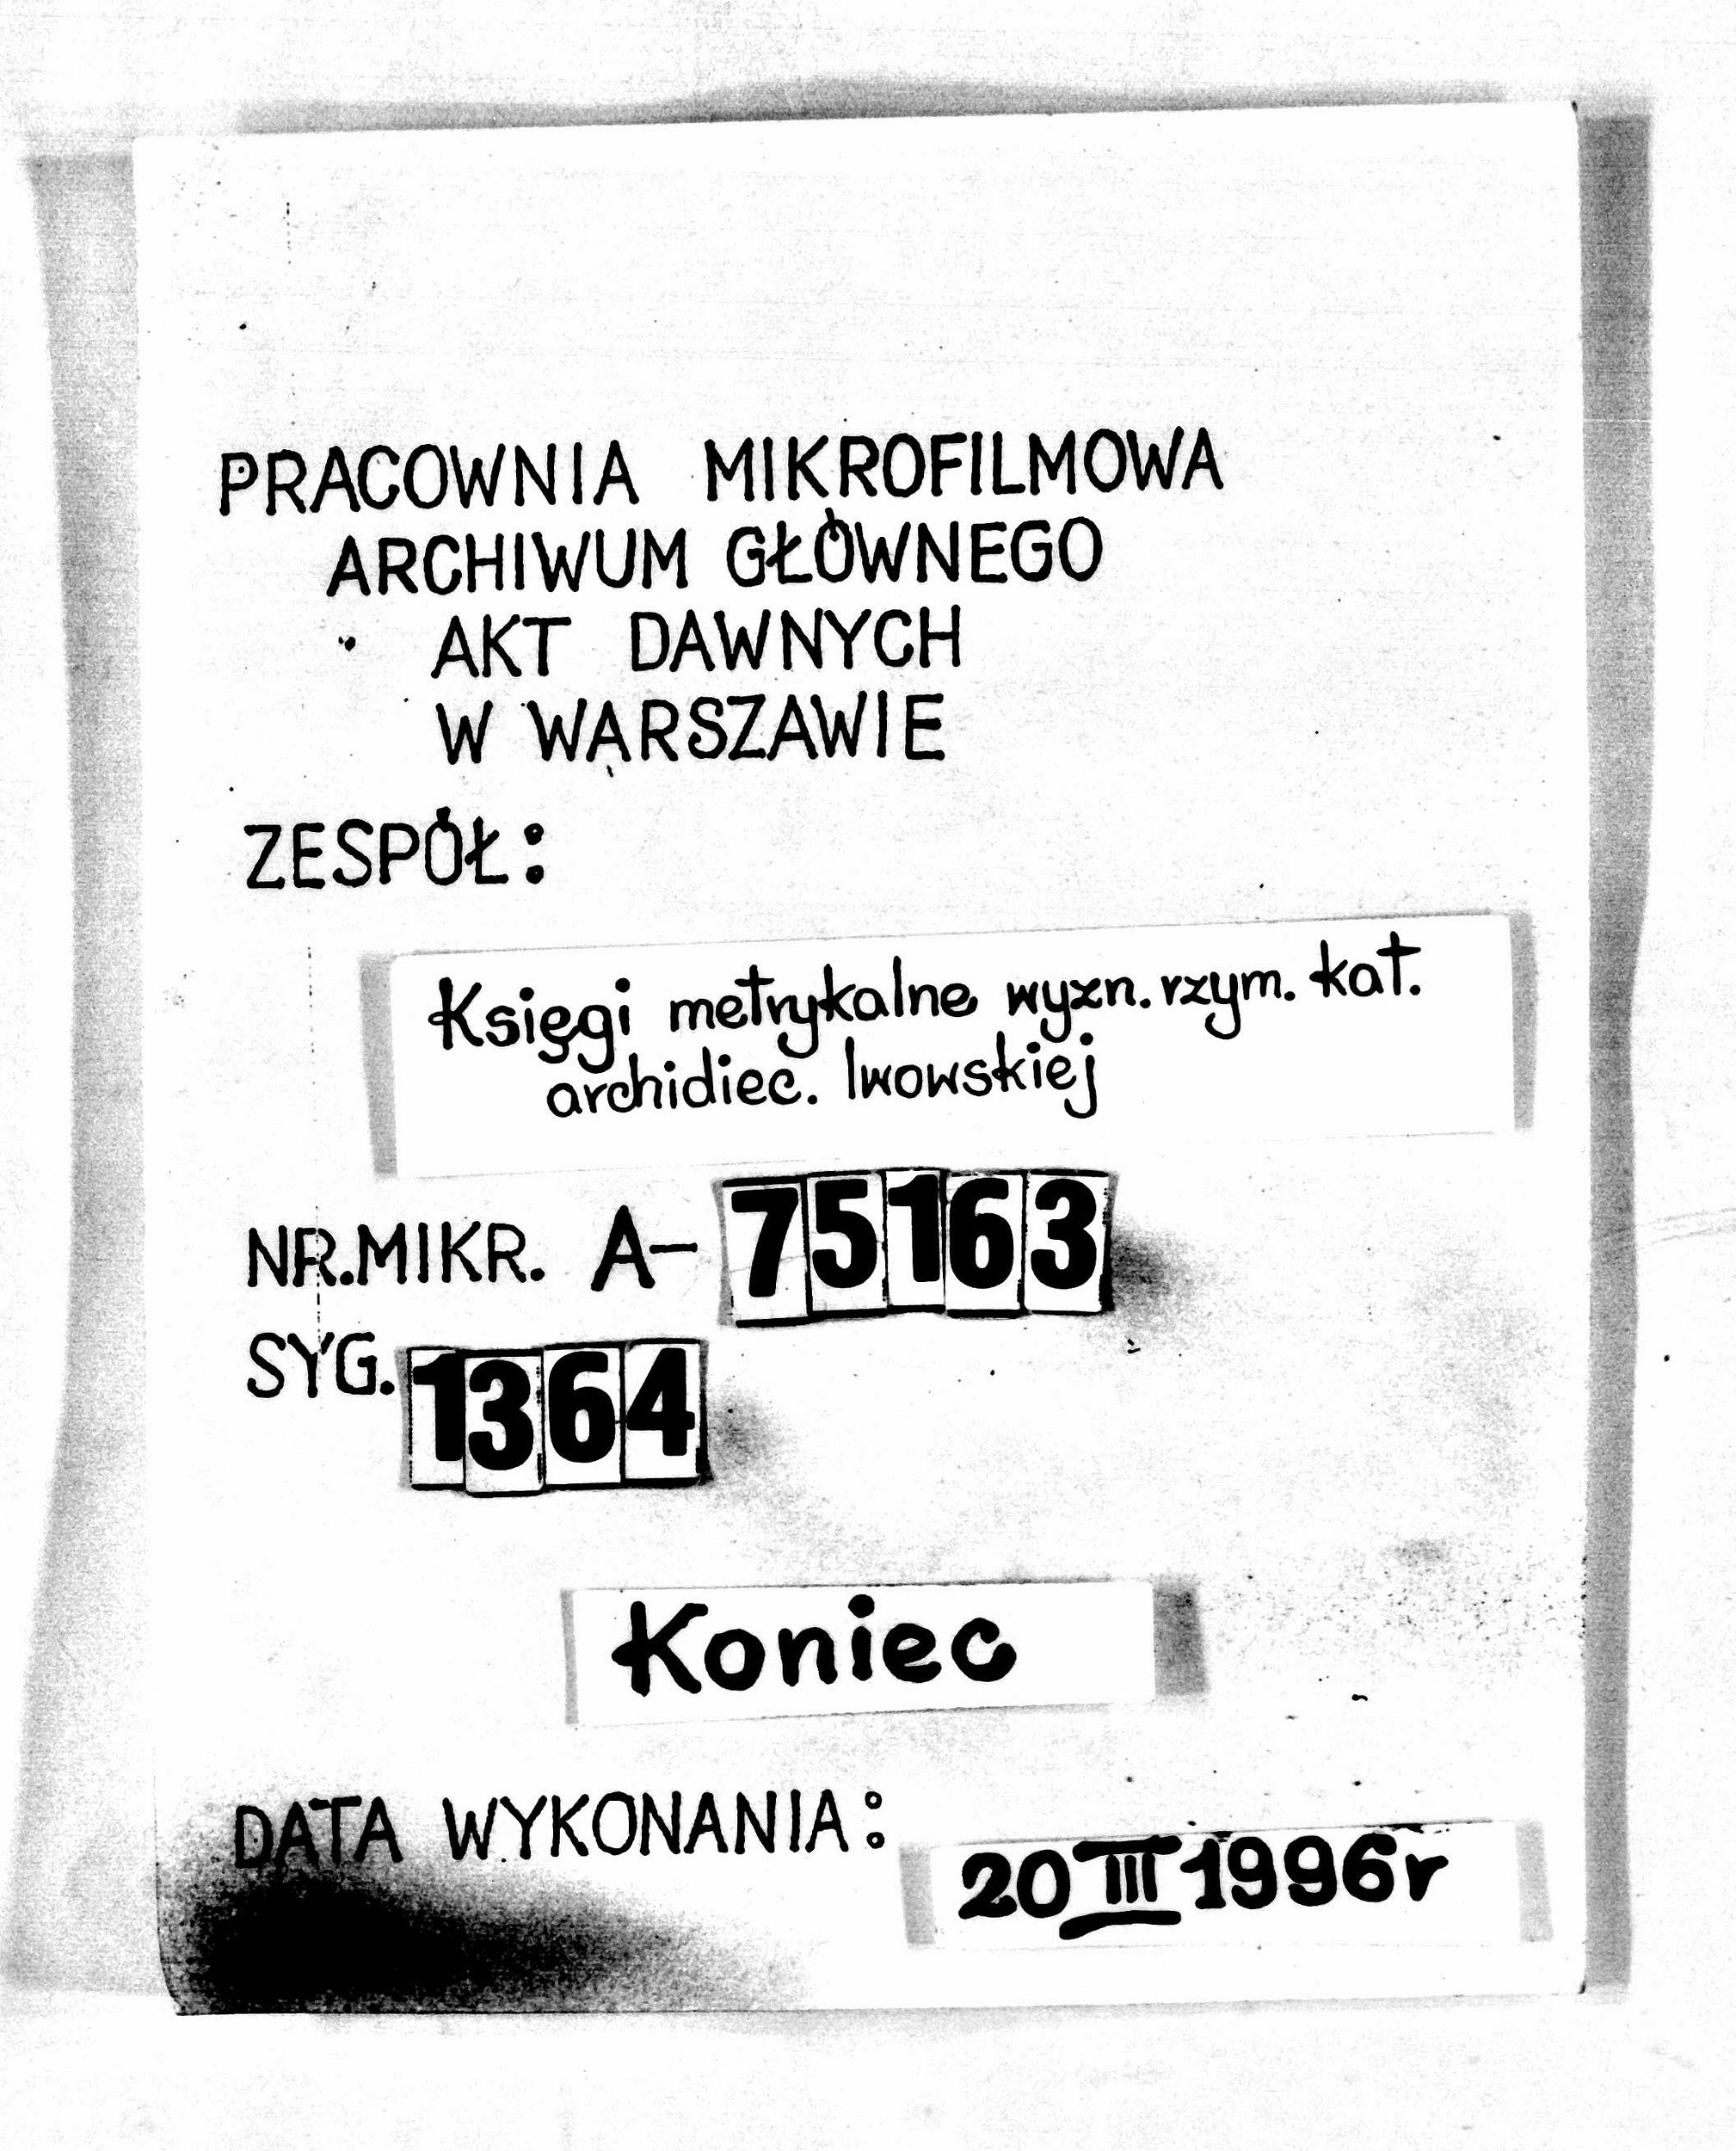 PRACOWNIA MIKROFILMOWA
ARCHIWUM GŁÓWNEGO
AKT DAWNYCH
W WARSZAWIE
ZESPÓŁ:
Księgi metrykalne wyzn. rzym. kat.
archidiec. lwowskiej
NR.MIKR. A- 75163
SYG. 1364
Koniec
DATA WYKONANIA:
20 III 1996r